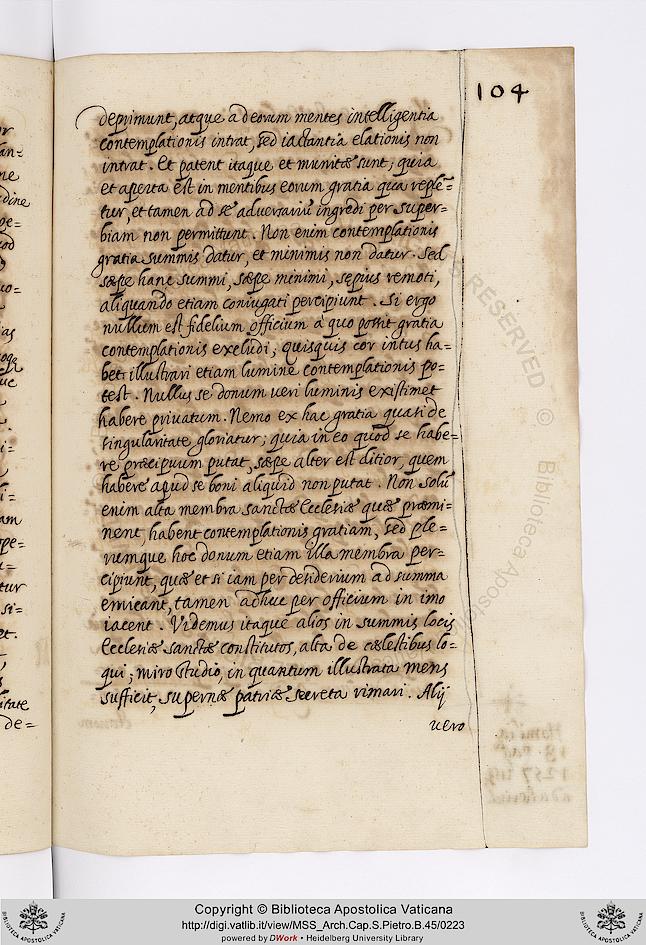 104
deprimunt, atque ad eorum mentes intelligentia
contemplationis intrat, sed iactantia elationis non
intrat. Et patent itaque et munitæ sunt; quia
et aperta est in mentibus eorum gratia qua reple=
tur, et tamen ad se adversariũ ingredi per super-
biam non permittunt. Non enim contemplationis
gratia summis datur, et minimis non datur. Sed
sæpe hanc summi, sæpe minimi, sępius remoti,
aliquando etiam coniugati percipiunt. Si ergo
nullum est fidelium officium à quo possit gratia
contemplationis excludi; quisquis cor intus ha=
bet illustrari etiam lumine contemplationis po=
test. Nullus se donum ueri luminis existimet
habere priuatum. Nemo ex hac gratia quasi de
singularitate glorietur; quia in eo quod se habe=
re præcipuum putat, sæpe alter est ditior, quem
habere apud se boni aliquid non putat. Non solũ
enim alta membra sanctæ Ecclesiæ quæ præmi=
nent, habent contemplationis gratiam, sed ple=
rumque hoc donum etiam illa membra per=
cipiunt, quæ et si iam per desiderium ad summa
emicant, tamen adhuc per officium in imo
iacent. Videmus itaque alios in summis locis
Ecclesiæ sanctæ constitutos, alta de cælestibus lo=
qui; miro studio, in quantum illustrata mens
sufficit, supernæ patriæ secreta rimari. Alij
uero
S RESERVED © Biblioteca Apostol
Copyright © Biblioteca Apostolica Vaticana
http://digi.vatlib.it/view/MSS_Arch.Cap.S.Pietro.B.45/0223
powered by DWork • Heidelberg University Library